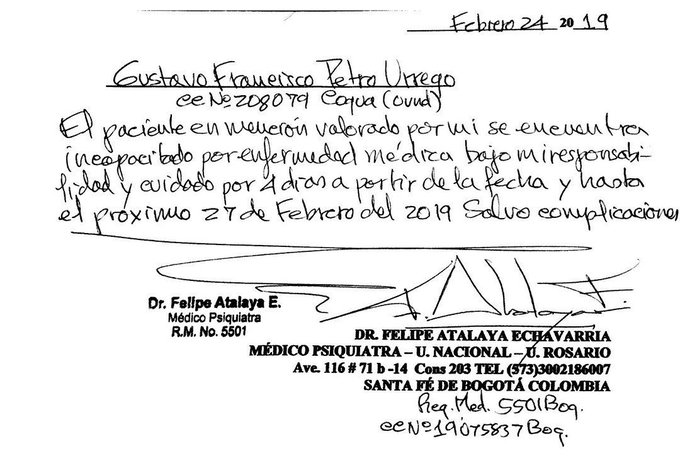 Febrero 24 2019
Gustavo Francisco Petro Urrego
cc Nº 208079 Cogua (Cund)
El paciente en mención valorado por mi se encuentra
incapacitado por enfermedad médica bajo mi responsabi-
lidad y cuidado por 4 dias a partir de la fecha y hasta
el próximo 27 de Febrero del 2019 Salvo complicaciones
Dr. Felipe Atalaya E.
Médico Psiquiatra
R.M. No. 5501
A. Atalaya E.
DR. FELIPE ATALAYA ECHAVARRIA
MÉDICO PSIQUIATRA – U. NACIONAL – U. ROSARIO
Ave. 116 # 71 b -14 Cons 203 TEL (573)3002186007
SANTA FÉ DE BOGOTÁ COLOMBIA
Reg. Med. 5501 Bog.
cc Nº 19075837 Bog.